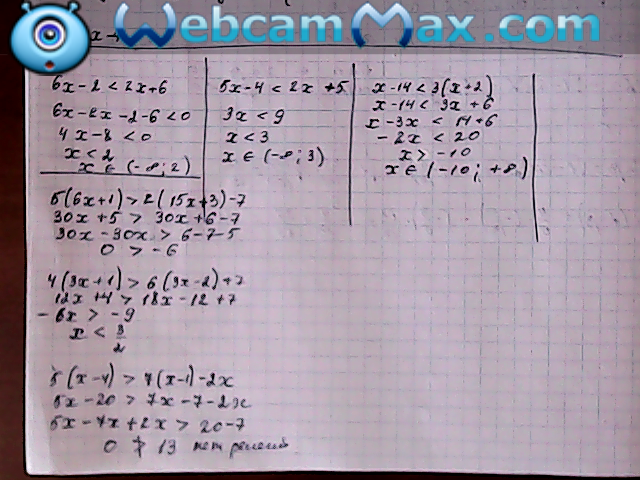 WebcamMax.com
x -
6x - 2 < 2x + 6
6x - 2x - 2 - 6 < 0
4x - 8 < 0
x < 2
x ∈ (-∞; 2)
5x - 4 < 2x + 5
3x < 9
x < 3
x ∈ (-∞; 3)
x - 14 < 3(x + 2)
x - 14 < 3x + 6
x - 3x < 14 + 6
- 2x < 20
x > -10
x ∈ (-10; +∞)
5(6x + 1) > 2(15x + 3) - 7
30x + 5 > 30x + 6 - 7
30x - 30x > 6 - 7 - 5
0 > - 6
4(3x + 1) > 6(3x - 2) + 7
12x + 4 > 18x - 12 + 7
- 6x > - 9
x < 3/2
5(x - 4) > 7(x - 1) - 2x
5x - 20 > 7x - 7 - 2x
5x - 7x + 2x > 20 - 7
0 ≯ 13 нет решений